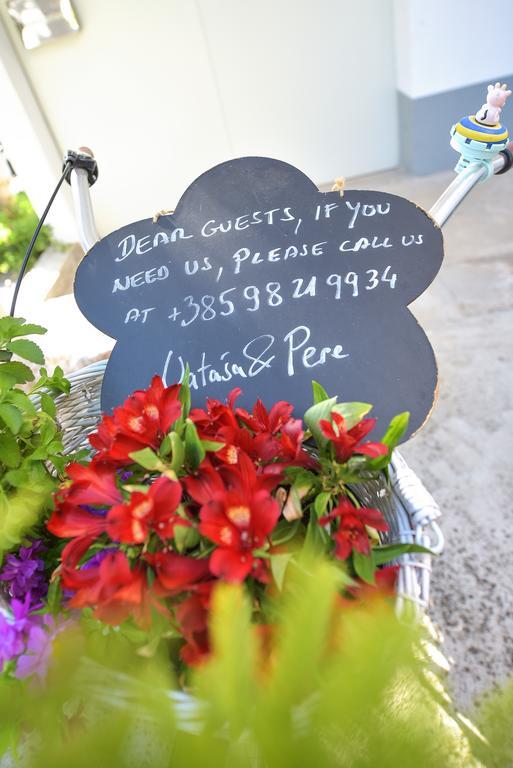 DEAR GUESTS, IF YOU
NEED US, PLEASE CALL US
AT +385 98 21 9934
Nataša & Pere